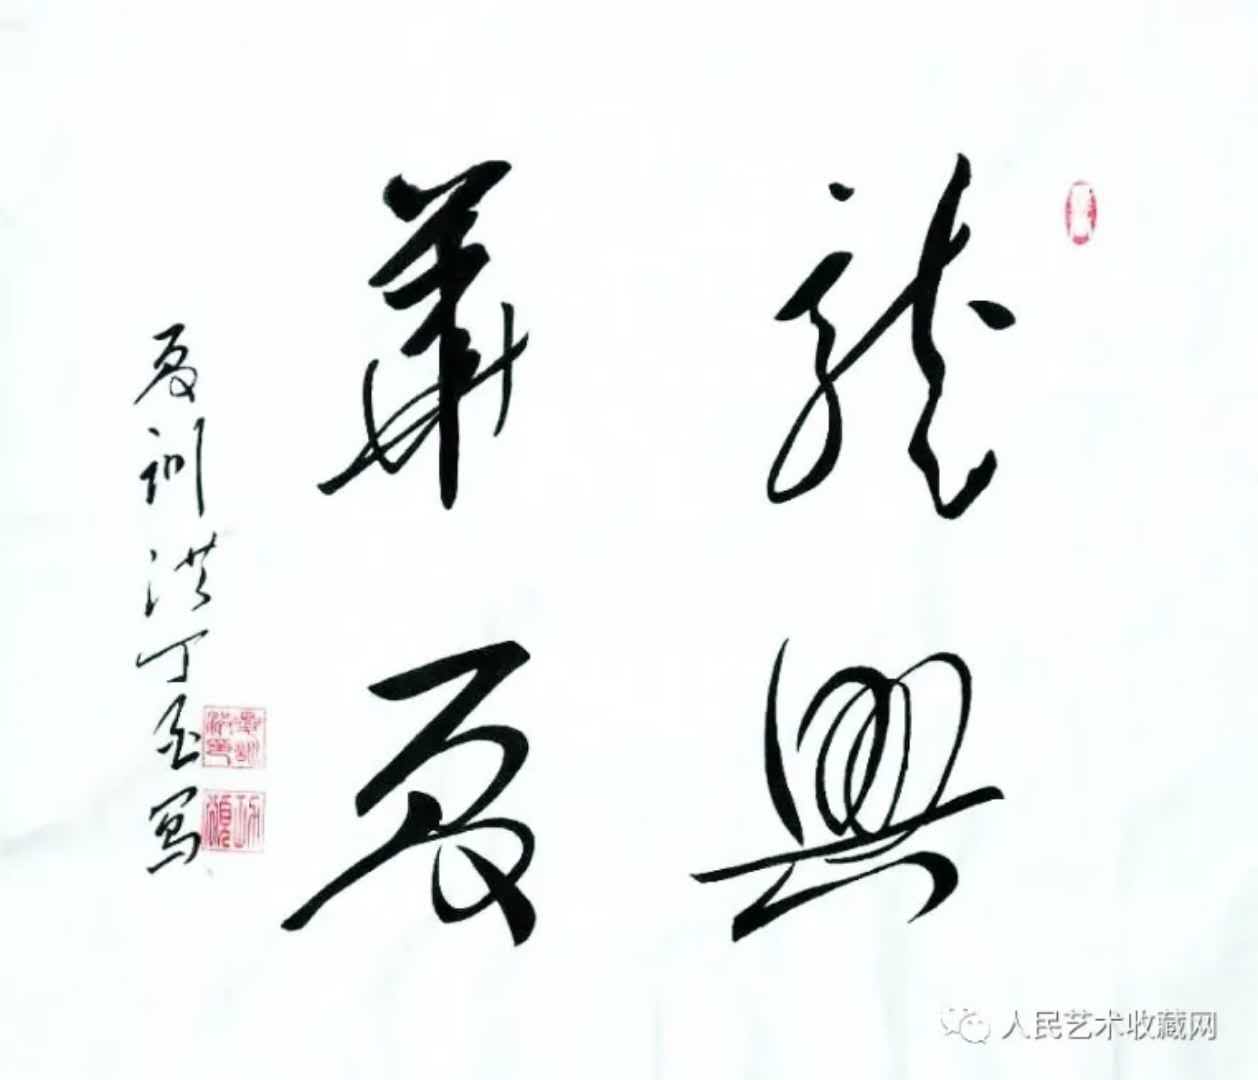 龍興
華夏
夏訓洪丁酉寫
人民艺术收藏网